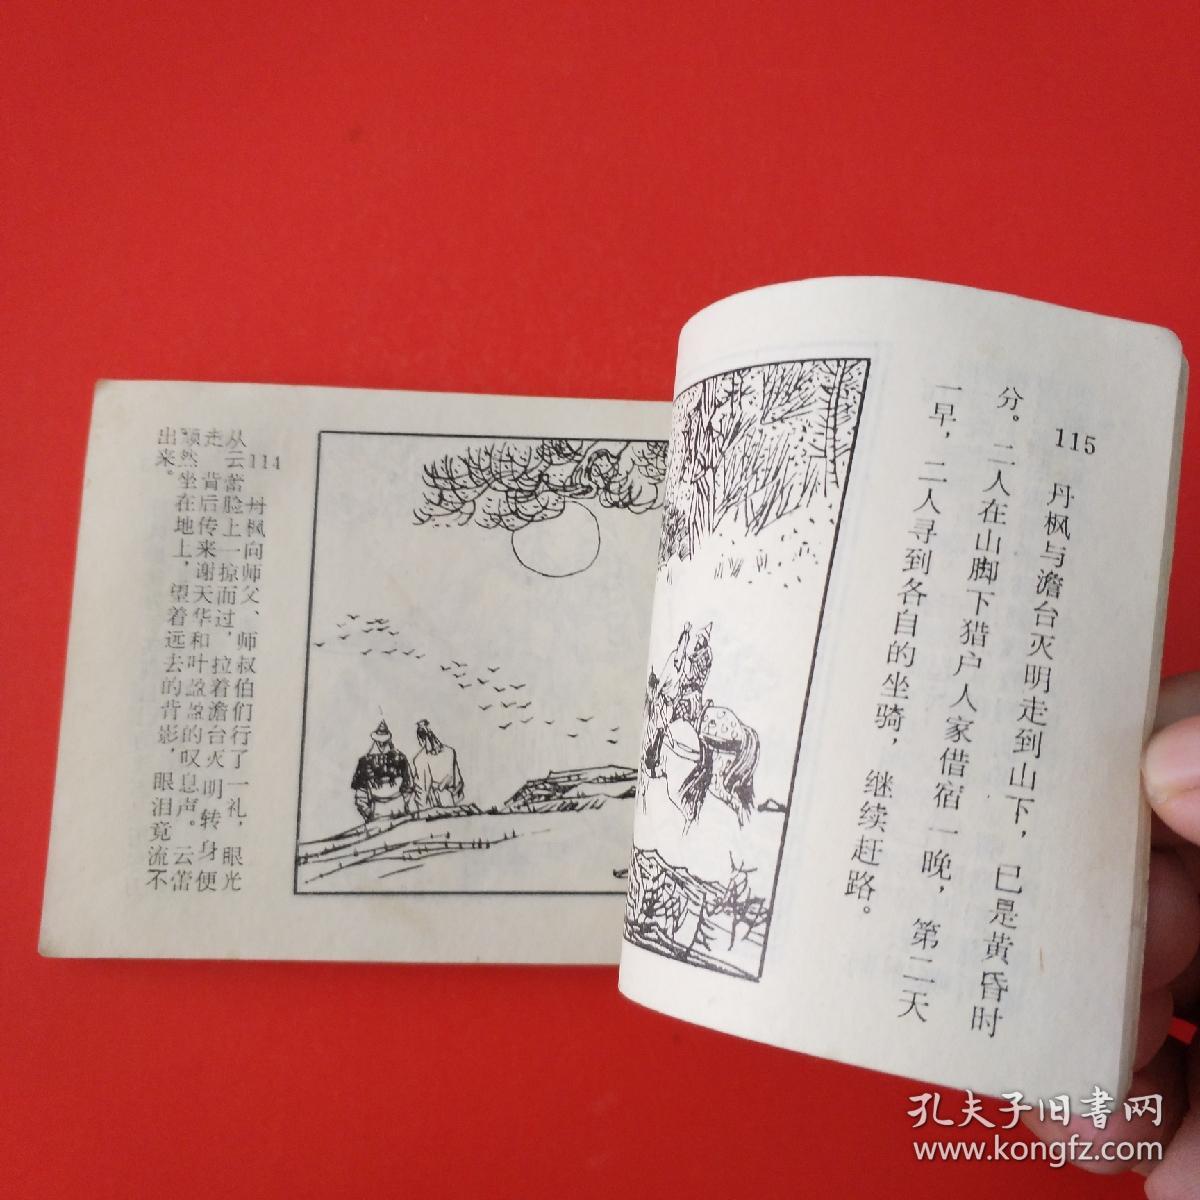 114 丹枫向师父、师叔伯们行了一礼，眼光
从云蕾脸上一掠而过，拉着澹台灭明转身便
走。背后传来谢天华和叶盈盈的叹息声。云蕾
颓然坐在地上，望着远去的背影，眼泪竟流不
出来。
115 丹枫与澹台灭明走到山下，已是黄昏时
分。二人在山脚下猎户人家借宿一晚，第二天
一早，二人寻到各自的坐骑，继续赶路。
孔夫子旧書网
www.kongfz.com